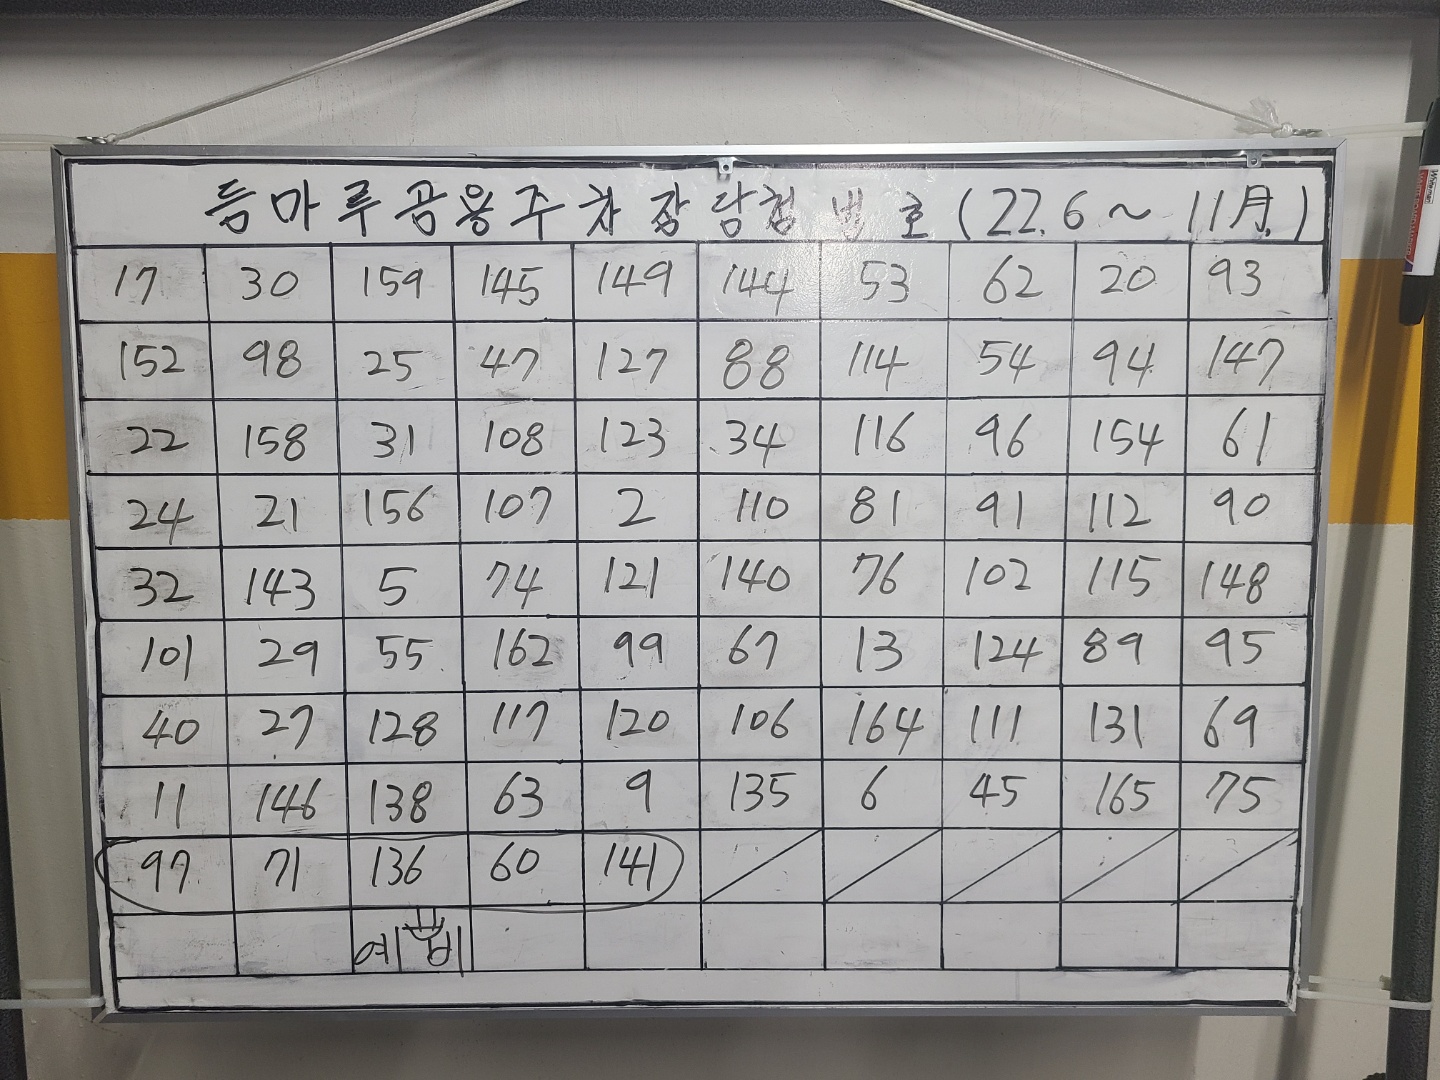 등마루공용주차장당첨번호(22.6~11月.)
17 30 159 145 149 144 53 62 20 93
152 98 25 47 127 88 114 54 94 147
22 158 31 108 123 34 116 96 154 61
24 21 156 107 2 110 81 91 112 90
32 143 5 74 121 140 76 102 115 148
101 29 55 162 99 67 13 124 89 95
40 27 128 117 120 106 164 111 131 69
11 146 138 63 9 135 6 45 165 75
97 71 136 60 141
예비